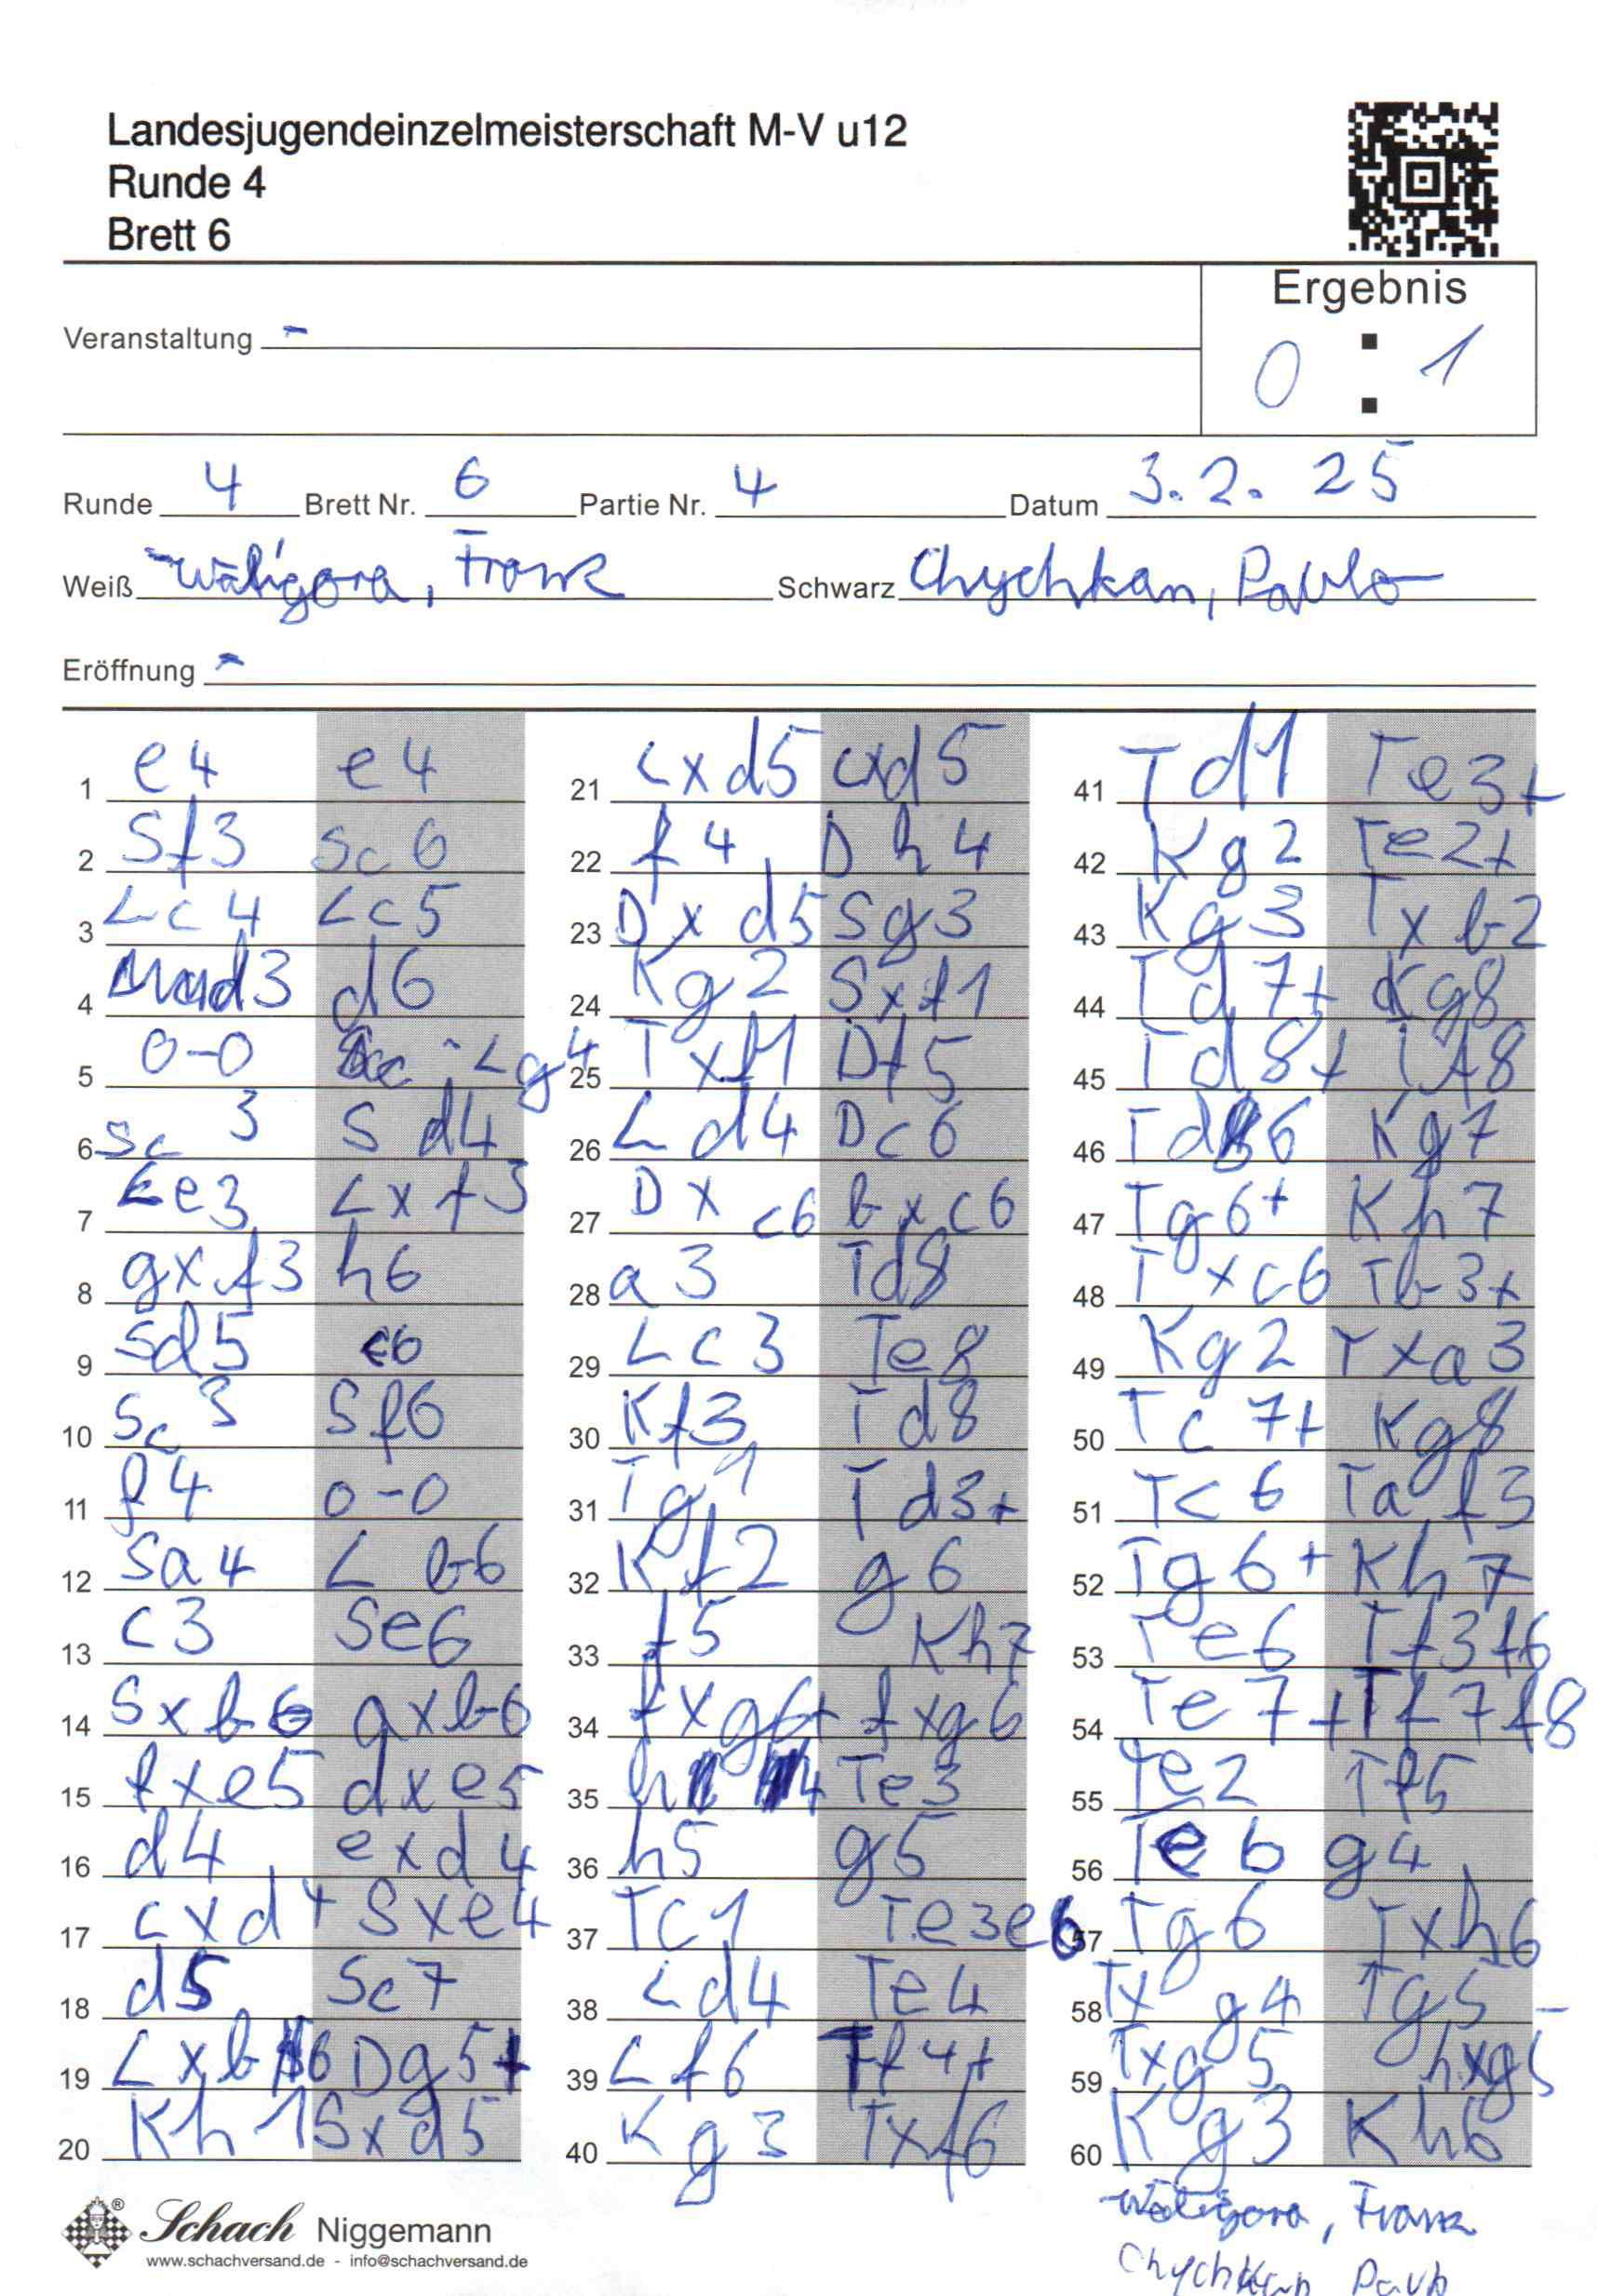 Landesjugendeinzelmeisterschaft M-V u12
Runde 4
Brett 6
Ergebnis
Veranstaltung -
0 : 1
Runde 4 Brett Nr. 6 Partie Nr. 4 Datum 3.2.25
Weiß Waligora, Frank Schwarz Chychkan, Pavlo
Eröffnung -
1 e4 e4
2 Sf3 Sc6
3 Lc4 Lc5
4 d3 d6
5 0-0 Lg4
6 Sc3 Sd4
7 Le3 Lxf3
8 gxf3 h6
9 Sd5 c6
10 Sc3 Sf6
11 f4 0-0
12 Sa4 Lb6
13 c3 Se6
14 Sxb6 axb6
15 fxe5 dxe5
16 d4 exd4
17 cxd4 Sxe4
18 d5 Sc7
19 Lxb6 Dg5+
20 Kh1 Sxd5
21 Lxd5 cxd5
22 f4 Dh4
23 Dxd5 Sg3
24 Kg2 Sxf1
25 Txf1 Df5
26 Ld4 Dc6
27 Dxc6 bxc6
28 a3 Td8
29 Lc3 Te8
30 Kf3 Td8
31 Tg1 Td3+
32 Kf2 g6
33 f5 Kh7
34 fxg6+ fxg6
35 h4 Te3
36 h5 g5
37 Tc1 Te3e6
38 Ld4 Te4
39 Lf6 Tf4+
40 Kg3 Txf6
41 Td1 Te3+
42 Kg2 Te2+
43 Kg3 Txb2
44 Td7+ Kg8
45 Td8+ Tf8
46 Td6 Kg7
47 Tg6+ Kh7
48 Txc6 Tb3+
49 Kg2 Txa3
50 Tc7+ Kg8
51 Tc6 Taf3
52 Tg6+ Kh7
53 Te6 Tf3f6
54 Te7+ Tf7f8
55 Te2 Tf5
56 Te6 g4
57 Tg6 Txh6
58 Txg4 Tg5
59 Txg5 hxg5
60 Kg3 Kh6
Schach Niggemann
www.schachversand.de - info@schachversand.de
Waligora, Frank
Chychkan Pavlo